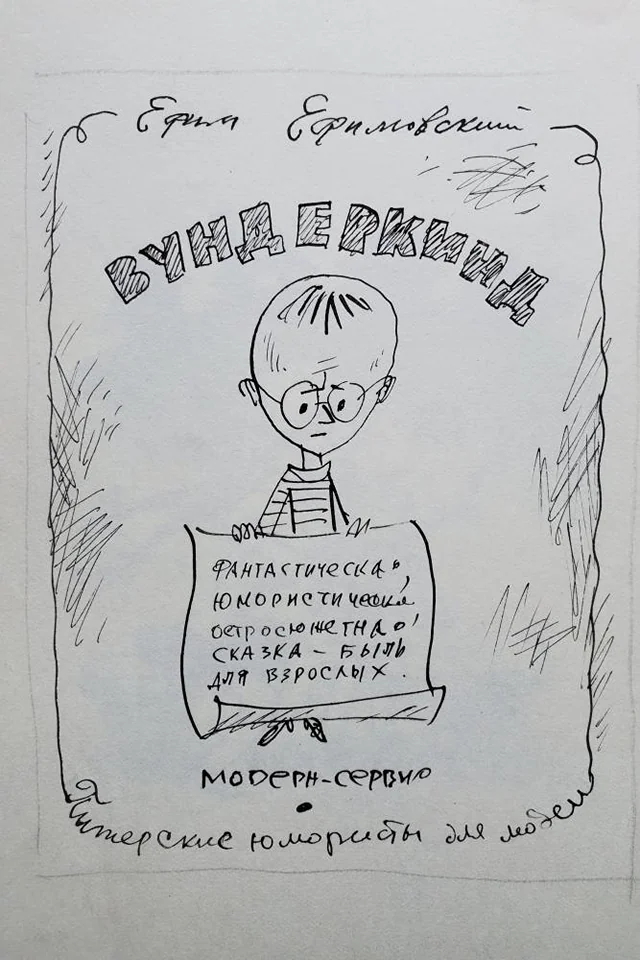 Ефим Ефимовский
ВУНДЕРКИНД
ФАНТАСТИЧЕСКАЯ,
ЮМОРИСТИЧЕСКАЯ
ОСТРОСЮЖЕТНАЯ
СКАЗКА – БЫЛЬ
ДЛЯ ВЗРОСЛЫХ.
МОДЕРН-СЕРВИС
Питерские юмористы для людей